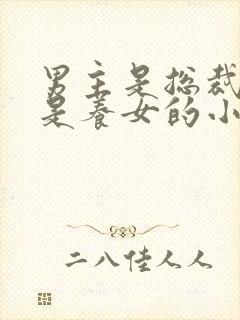 男主是总裁
是养女的小
二八佳人人